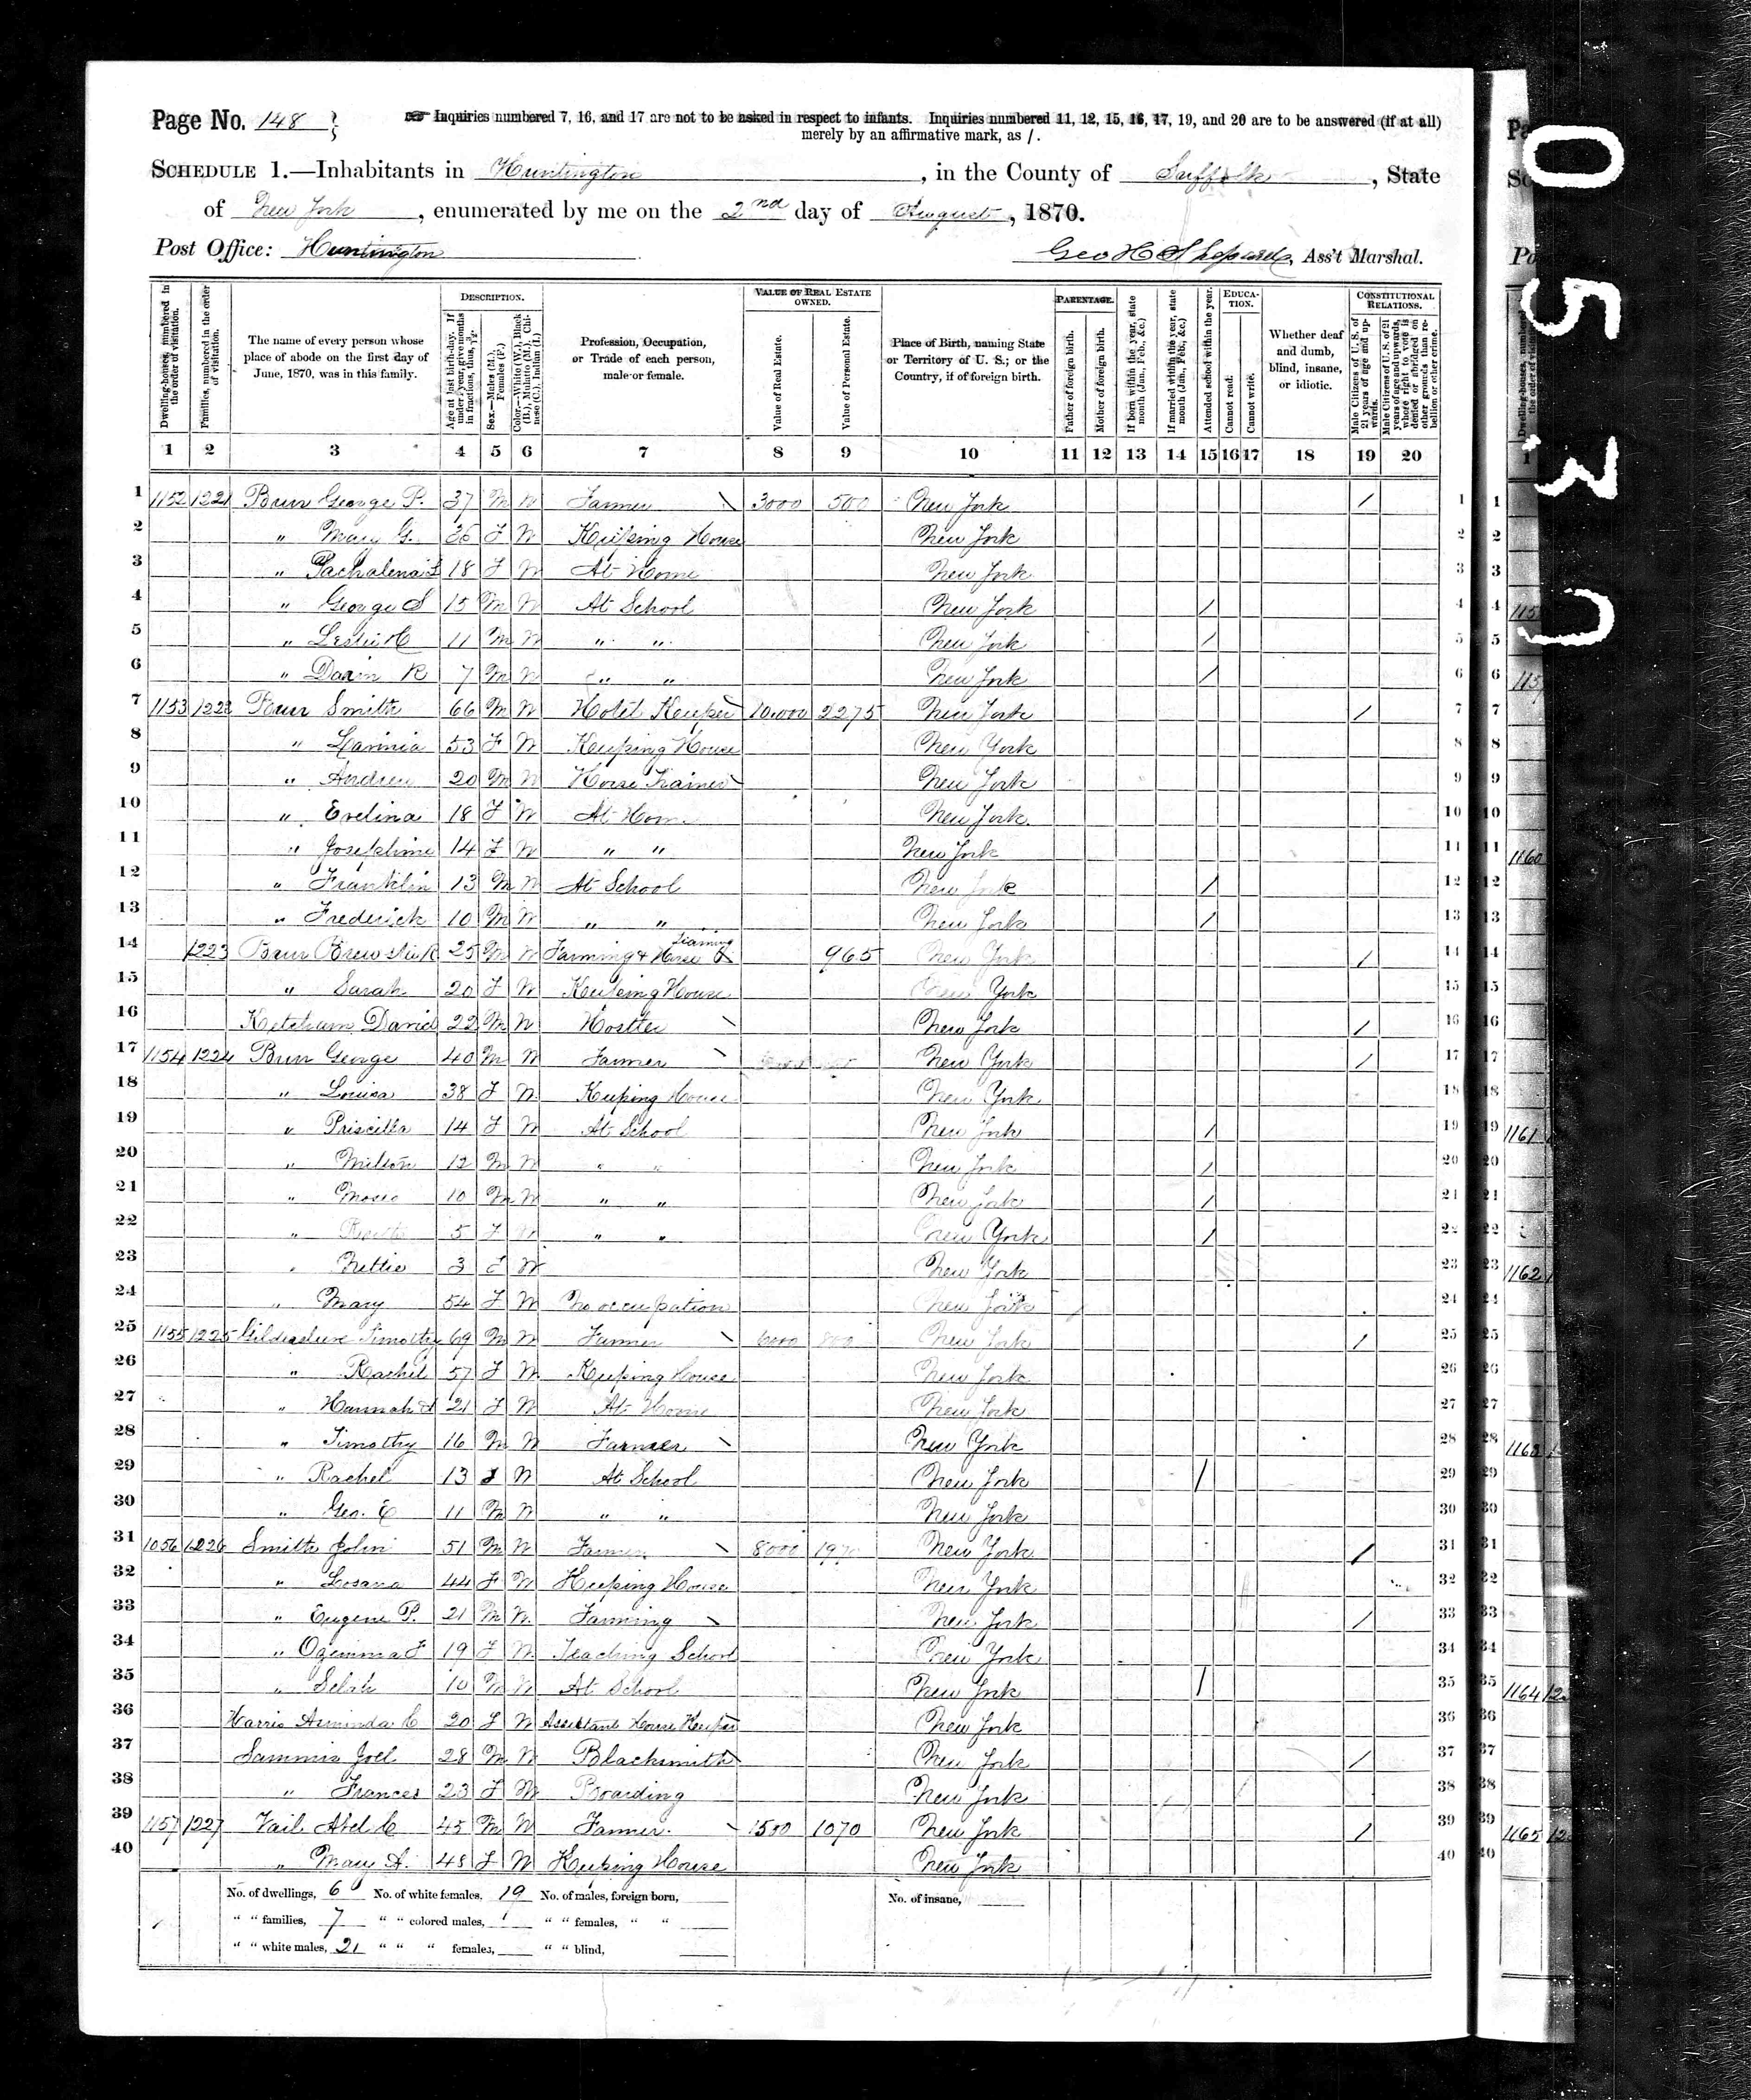 Page No. 148
Inquiries numbered 7, 16, and 17 are not to be asked in respect to infants. Inquiries numbered 11, 12, 15, 16, 17, 19, and 20 are to be answered (if at all)
merely by an affirmative mark, as /.
SCHEDULE 1.—Inhabitants in Huntington, in the County of Suffolk, State
of New York, enumerated by me on the 2nd day of August, 1870.
Post Office: Huntington
Geo H Shepard, Ass't Marshal.
Dwelling-houses, numbered in the order of visitation.
Families, numbered in the order of visitation.
The name of every person whose place of abode on the first day of June, 1870, was in this family.
DESCRIPTION.
Age at last birth-day. If under 1 year, give months in fractions, thus, 3/12.
Sex.—Males (M.), Females (F.)
Color.—White (W.), Black (B.), Mulatto (M.), Chinese (C.), Indian (I.)
Profession, Occupation, or Trade of each person, male or female.
VALUE OF REAL ESTATE OWNED.
Value of Real Estate.
Value of Personal Estate.
Place of Birth, naming State or Territory of U. S.; or the Country, if of foreign birth.
PARENTAGE.
Father of foreign birth.
Mother of foreign birth.
If born within the year, state month (Jan., Feb., &c.)
If married within the year, state month (Jan., Feb., &c.)
Attended school within the year.
EDUCATION.
Cannot read.
Cannot write.
Whether deaf and dumb, blind, insane, or idiotic.
CONSTITUTIONAL RELATIONS.
Male Citizens of U. S. of 21 years of age and upwards.
Male Citizens of U. S. of 21 years of age and upwards, whose right to vote is denied or abridged on other grounds than rebellion or other crime.
1 2 3 4 5 6 7 8 9 10 11 12 13 14 15 16 17 18 19 20
1 1152 1221 George P. 37 M W Farmer 3000 500 New York / 1
2 " Mary G. F W Keeping House New York 2
3 " 18 F W At Home New York 3
4 " George S 15 M W At School New York / 4
5 " Leslie 11 M W " " New York / 5
6 " R 7 M W " " New York / 6
7 1153 1222 Smith 66 M W Hotel Keeper 10,000 2275 New York / 7
8 " 53 F W Keeping House New York 8
9 " Andrew 20 M W Horse Trainer New York 9
10 " Evelina 18 F W At Home New York 10
11 " Josephine 14 F W " " New York 11
12 " Franklin 13 M W At School New York / 12
13 " Frederick 10 M W " " New York / 13
14 1223 25 M W Farming & Horse Training 965 New York / 14
15 " Sarah 20 F W Keeping House New York 15
16 Ketcham David 22 M W Hostler New York / 16
17 1154 1224 George 40 M W Farmer New York / 17
18 " Louisa 38 F W Keeping House New York 18
19 " Priscilla 14 F W At School New York / 19
20 " Milton 12 M W " " New York / 20
21 " Moses 10 M W " " New York / 21
22 " 5 F W " " New York / 22
23 " Nettie 3 F W New York 23
24 " Mary 54 F W No occupation New York 24
25 1155 1225 Gildersleeve Timothy 69 M W Farmer New York / 25
26 " Rachel 57 F W Keeping House New York 26
27 " Hannah 21 F W At Home New York 27
28 " Timothy 16 M W Farmer New York 28
29 " Rachel 13 F W At School New York / 29
30 " Geo. E 11 M W " " New York 30
31 1056 1226 Smith John 51 M W Farmer 8000 New York / 31
32 " 44 F W Keeping House New York 32
33 " Eugene P. 21 M W Farming New York / 33
34 " F 19 F W Teaching School New York 34
35 " Selah 10 M W At School New York / 35
36 Harris Arminda C 20 F W Assistant House Keeper New York 36
37 Sammis Joel 28 M W Blacksmith New York / 37
38 " Frances 23 F W Boarding New York 38
39 1157 1227 Vail Abel C 45 M W Farmer 1500 1070 New York / 39
40 " Mary A. 48 F W Keeping House New York 40
No. of dwellings, 6 No. of white females, 19 No. of males, foreign born, No. of insane,
" " families, 7 " " colored males, " " females, " "
" " white males, 21 " " " females, " " blind,
0530
1160
1161
1162
1164
1165